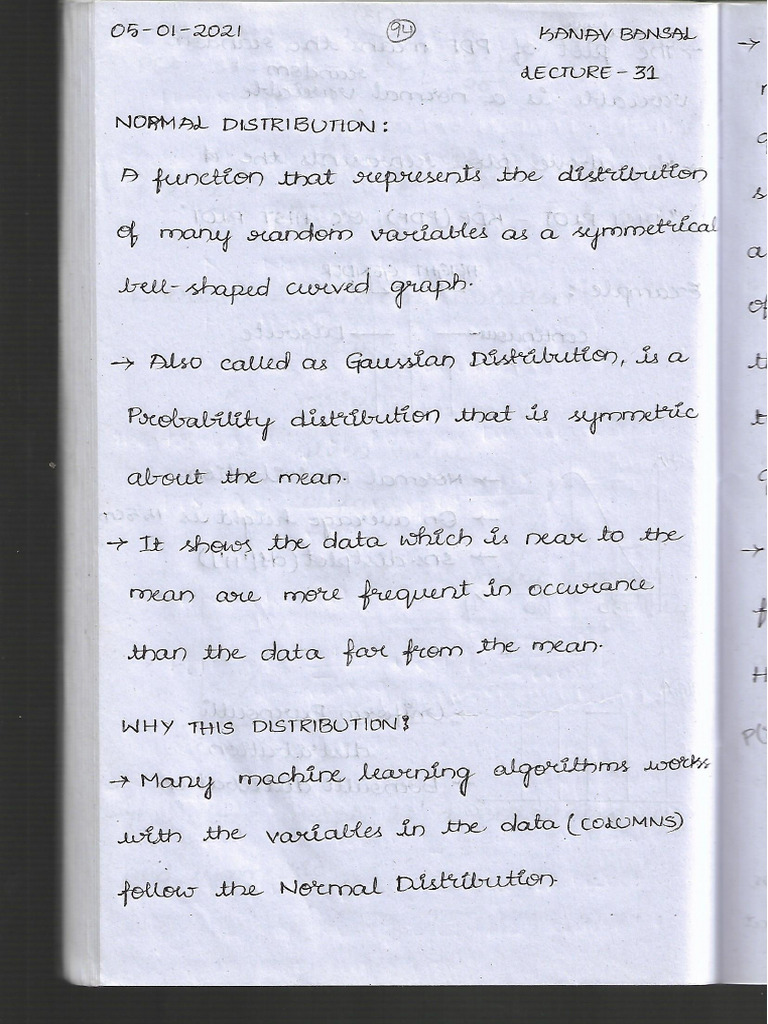 05-01-2021 94 KANAV BANSAL
LECTURE - 31
NORMAL DISTRIBUTION:
A function that represents the distribution
of many random variables as a symmetrical
bell-shaped curved graph.
→ Also called as Gaussian Distribution, is a
Probability distribution that is symmetric
about the mean.
→ It shows the data which is near to the
mean are more frequent in occurance
than the data far from the mean.
WHY THIS DISTRIBUTION?
→ Many machine learning algorithms works
with the variables in the data (COLUMNS)
follow the Normal Distribution.